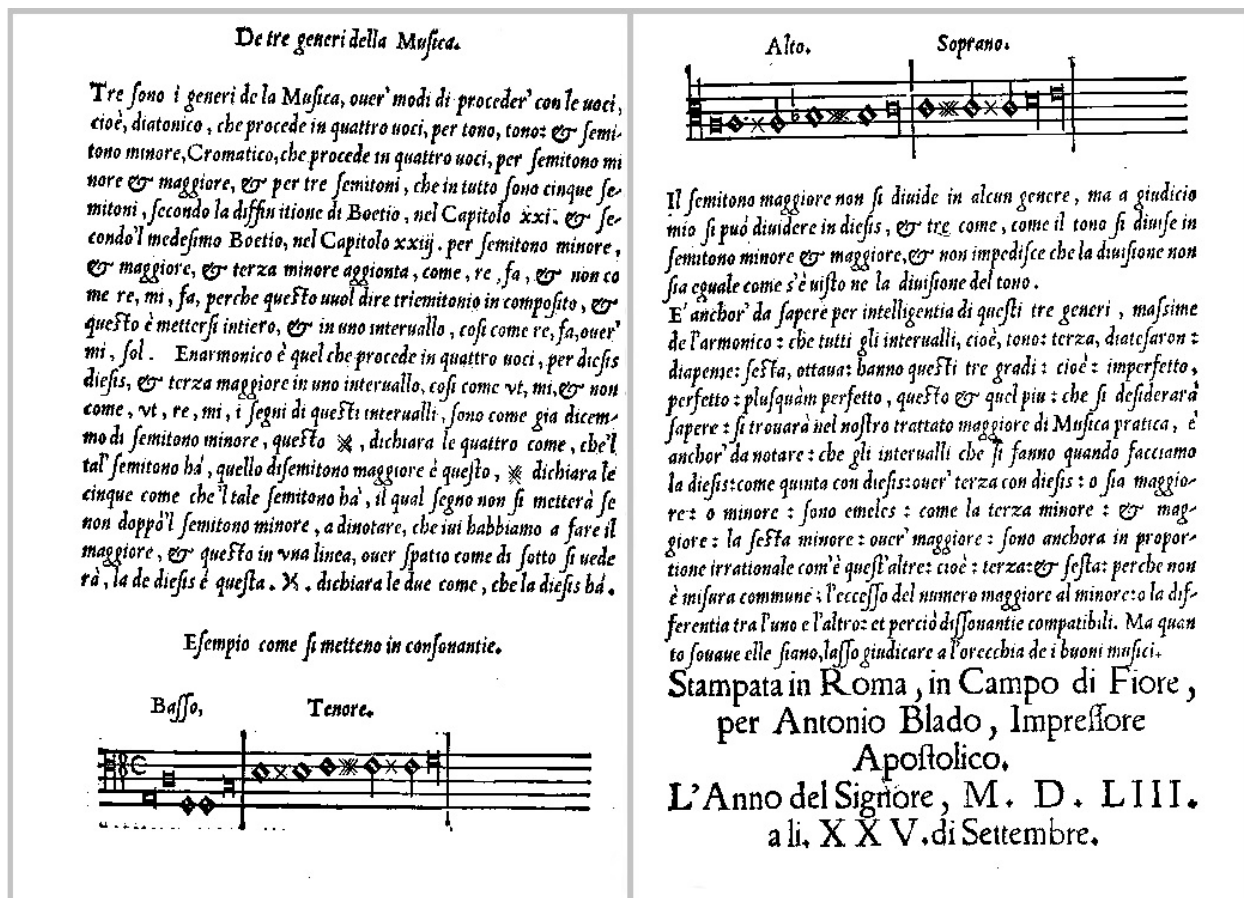 De tre generi della Musica.
Tre sono i generi de la Musica, ouer' modi di proceder' con le uoci,
cioè, diatonico, che procede in quattro uoci, per tono, tono: & semi-
tono minore, Cromatico, che procede in quattro uoci, per semitono mi
nore & maggiore, & per tre semitoni, che in tutto sono cinque se-
mitoni, secondo la diffinitione di Boetio, nel Capitolo xxi. & se-
condo'l medesimo Boetio, nel Capitolo xxiij. per semitono minore,
& maggiore, & terza minore aggionta, come, re, fa, & non co
me re, mi, fa, perche questo uuol dire triemitonio in composito, &
questo è mettersi intiero, & in uno interuallo, cosi come re, fa, ouer'
mi, sol. Enarmonico è quel che procede in quattro uoci, per diesis
diesis, & terza maggiore in uno interuallo, cosi come vt, mi, & non
come, vt, re, mi, i segni di questi interualli, sono come gia dicem-
mo di semitono minore, questo , dichiara le quattro come, che'l
tal' semitono há, quello disemitono maggiore è questo, dichiara le
cinque come che'l tale semitono hà, il qual segno non si metterà se
non doppò'l semitono minore, a dinotare, che iui habbiamo a fare il
maggiore, & questo in vna linea, ouer spatio come di sotto si uede
rà, la de diesis è questa. . dichiara le due come, che la diesis há.
Esempio come si metteno in consonantie.
Basso, Tenore.
Alto. Soprano.
Il semitono maggiore non si diuide in alcun genere, ma a giudicio
mio si può diuidere in diesis, & tre come, come il tono si diuise in
semitono minore & maggiore, & non impedisce che la diuisione non
sia eguale come s'è uisto ne la diuisione del tono.
E' anchor' da sapere per intelligentia di questi tre generi, massime
de l'armonico: che tutti gli interualli, cioè, tono: terza, diatesaron:
diapente: sesta, ottaua: hanno questi tre gradi: cioè: imperfetto,
perfetto: plusquàm perfetto, questo & quel piu: che si desiderarà
sapere: si trouarà nel nostro trattato maggiore di Musica pratica, è
anchor' da notare: che gli interualli che si fanno quando facciamo
la diesis: come quinta con diesis: ouer' terza con diesis: o sia maggio-
re: o minore: sono emeles: come la terza minore: & mag-
giore: la sesta minore: ouer' maggiore: sono anchora in propor-
tione irrationale com'è quest'altre: cioè: terza: & sesta: perche non
è misura commune: l'eccesso del numero maggiore al minore: o la dif-
ferentia tra l'uno e l'altro: et perciò dissonantie compatibili. Ma quan
to souaue elle siano, lasso giudicare a l'orecchia de i buoni musici.
Stampata in Roma, in Campo di Fiore,
per Antonio Blado, Impressore
Apostolico.
L'Anno del Signore, M. D. LIII.
a li. X X V. di Settembre.